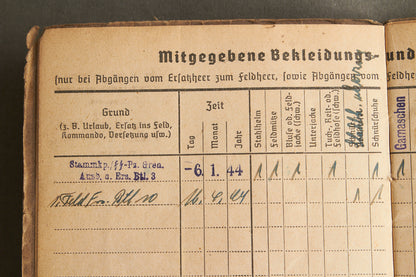 Mitgegebene Bekleidungs- und
(nur bei Abgängen vom Ersatzheer zum Feldheer, sowie Abgängen vom
Grund
(z. B. Urlaub, Ersatz ins Feld,
Kommando, Versetzung usw.)
Zeit
Tag
Monat
Jahr
Stahlhelm
Feldmütze
Bluse od. Feld-
jacke (schw.)
Unterjacke
Tuch-, Reit- od.
Feldhose (schw.)
Schnürschuhe
Gamaschen
Stammkp./SS-Pz. Gren.
Ausb. u. Ers. Btl. 3
-6. 1. 44 1 1 1 1 1 1
44 1 1